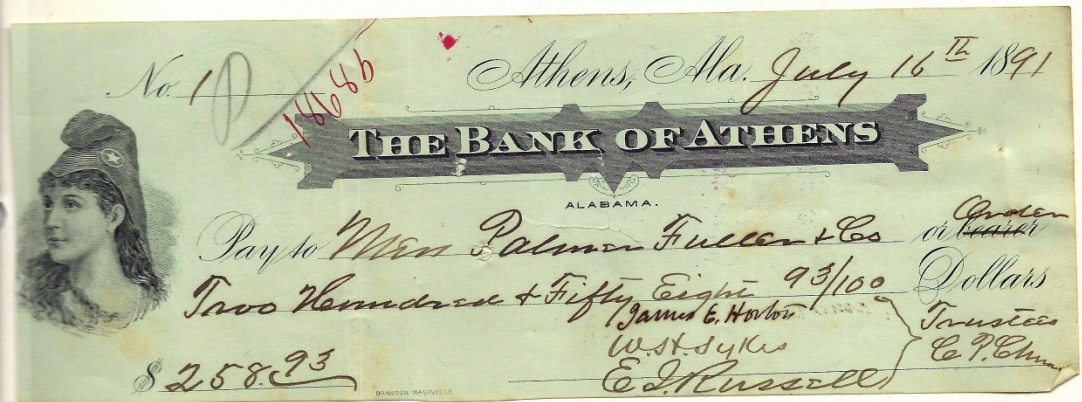 No. 1
18686
Athens, Ala. July 16th 1891
THE BANK OF ATHENS
ALABAMA.
Pay to Mess Palmer Fuller & Co or bearer Order
Two Hundred & Fifty Eight 93/100 Dollars
James E. Horton
W. H. Sykes
E J Russell
Trustees
C. P. Chu
$258.93
BRANDON NASHVILLE